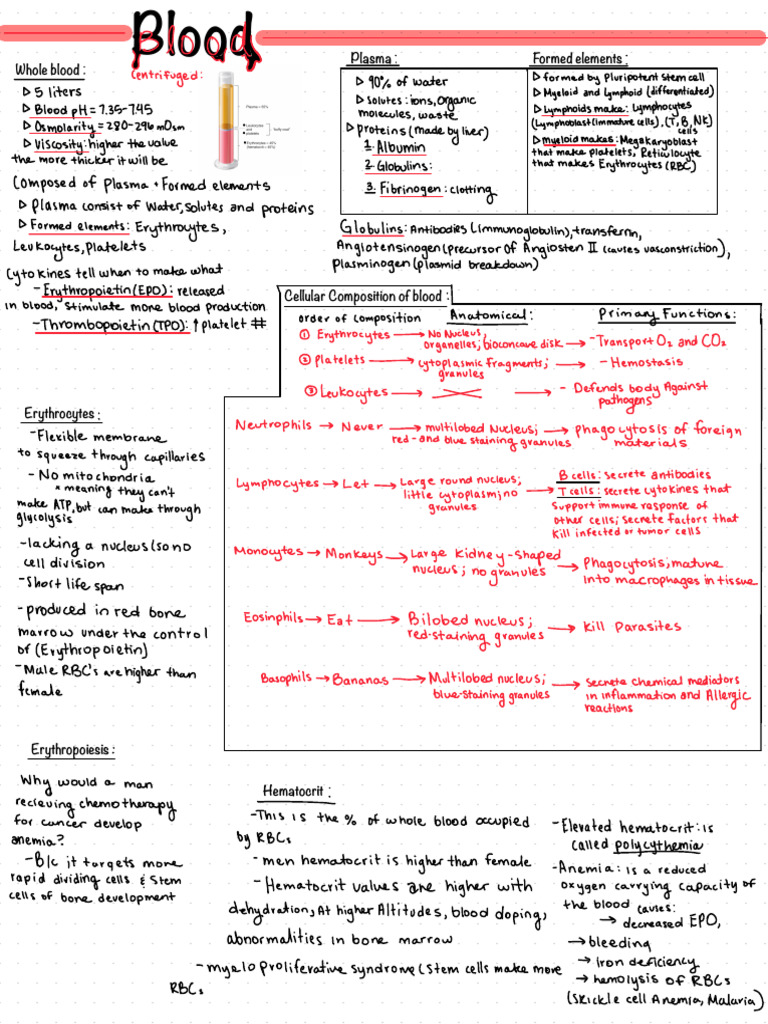 Blood
Whole blood :
▷ 5 liters
▷ Blood pH = 7.35-7.45
▷ Osmolarity = 280-296 mOsm
▷ Viscosity: higher the value
the more thicker it will be
Centrifuged:
Composed of Plasma + Formed elements
▷ Plasma consist of Water, Solutes and proteins
▷ Formed elements: Erythrocytes,
Leukocytes, Platelets
Cytokines tell when to make what
- Erythropoietin (EPO): released
in blood, stimulate more blood production
- Thrombopoietin (TPO): ↑ platelet #
Plasma :
▷ 90% of water
▷ Solutes: ions, Organic
molecules, waste
▷ proteins (made by liver)
1. Albumin
2. Globulins:
3. Fibrinogen: clotting
Formed elements :
▷ formed by Pluripotent stem cell
▷ Myeloid and Lymphoid (differentiated)
▷ Lymphoids make: Lymphocytes
(Lymphoblast (Immature cells), (T, B, NK)
cells
▷ myeloid makes: Megakaryoblast
that make platelets, Reticulocyte
that makes Erythrocytes (RBC)
Globulins: Antibodies (Immunoglobulin), transferrin,
Angiotensinogen (precursor of Angiosten II (causes vasconstriction),
Plasminogen (plasmid breakdown)
Cellular Composition of blood :
order of composition Anatomical: Primary Functions:
① Erythrocytes → No Nucleus,
organelles; bioconcave disk → - Transport O2 and CO2
② Platelets → cytoplasmic fragments;
granules → - Hemostasis
③ Leukocytes → → - Defends body Against
pathogens
Neutrophils → Never → multilobed Nucleus;
red-and blue staining granules → phagocytosis of foreign
materials
Lymphocytes → Let → Large round nucleus;
little cytoplasm; no
granules → B cells: secrete antibodies
T cells: secrete cytokines that
support immune response of
other cells; secrete factors that
Kill infected or tumor cells
Monocytes → Monkeys → Large Kidney-shaped
nucleus; no granules → Phagocytosis; mature
Into macrophages in tissue
Eosinphils → Eat → Bilobed nucleus;
red-staining granules → Kill Parasites
Basophils → Bananas → Multilobed nucleus;
blue-staining granules → secrete chemical mediators
in inflammation and Allergic
reactions
Erythrocytes :
- Flexible membrane
to squeeze through capillaries
- No mitochondria
* meaning they can't
make ATP, but can make through
glycolysis
- lacking a nucleus (so no
cell division
- Short life span
- produced in red bone
marrow under the control
of (Erythropoietin)
- Male RBC's are higher than
female
Erythropoiesis :
Why would a man
recieving chemotherapy
for cancer develop
anemia?
- B/c it targets more
rapid dividing cells & Stem
cells of bone development
Hematocrit :
- This is the % of whole blood occupied
by RBCs
- men hematocrit is higher than female
- Hematocrit values are higher with
dehydration, At higher Altitudes, blood doping,
abnormalities in bone marrow
- myelo proliferative syndrome (Stem cells make more
RBCs
- Elevated hematocrit: is
called polycythemia
- Anemia: is a reduced
oxygen carrying capacity of
the blood causes:
→ decreased EPO,
→ bleeding
→ Iron deficiency
→ hemolysis of RBCs
(Skickle cell Anemia, Malaria)